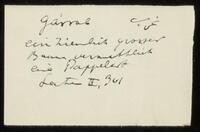 Gársab
ein ziemlich grosser
Baum, vermuthlich
eine Pappelart
II, 341